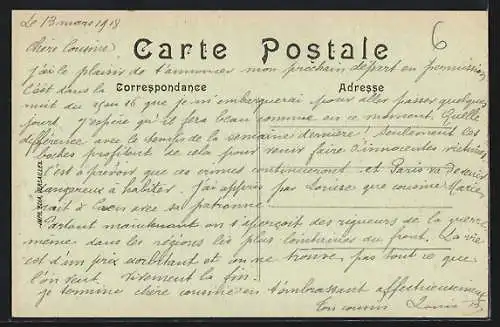 Le 13 mars 1918
6
Chère Cousine
Carte Postale
J'ai le plaisir de t'annoncer mon prochain départ en permission
C'est dans la
Correspondance
Adresse
nuit du 15 au 16 que je m'embarquerai pour aller passer quelques
jours, j'espère qu'il fera beau comme en ce moment. Quelle
différence avec le temps de la semaine dernière! Seulement ces
boches profitent de cela pour venir faire d'innocentes victimes
C'est à prévoir que ces crimes continueront et Paris va devenir
dangereux à habiter. J'ai appris par Louise que cousine Marie
était à Caen avec sa patronne.
Partout maintenant on s'aperçoit des rigueurs de la guerre
même dans les régions les plus lointaines du front. La vie
est d'un prix exorbitant et on ne trouve pas tout ce que
l'on veut. Vivement la fin.
Je termine chère cousine en t'embrassant affectueusement
Ton cousin Louis